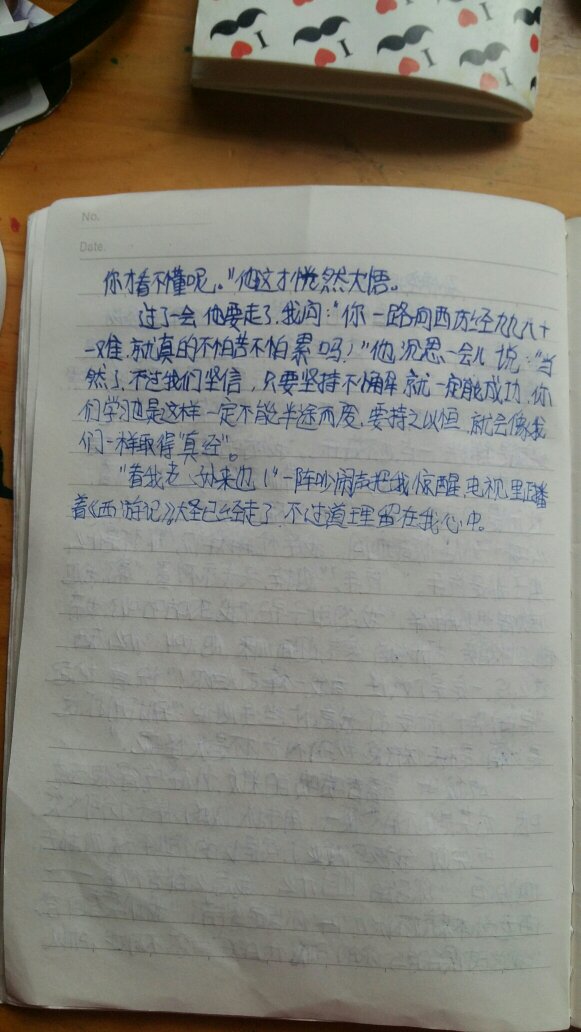 I
I
I
No.
Date.
你才看不懂呢。"他这才恍然大悟。
过了一会他要走了,我问:"你一路向西历经九九八十
一难,就真的不怕苦不怕累吗?"他沉思一会儿说:"当
然了,不过我们坚信,只要坚持不懈就一定能成功,你
们学习也是这样一定不能半途而废,要持之以恒就会像我
们一样取得"真经"。
"看我老孙来也!"一阵吵闹声把我惊醒电视里正播
着《西游记》,大圣已经走了,不过道理留在我心中。